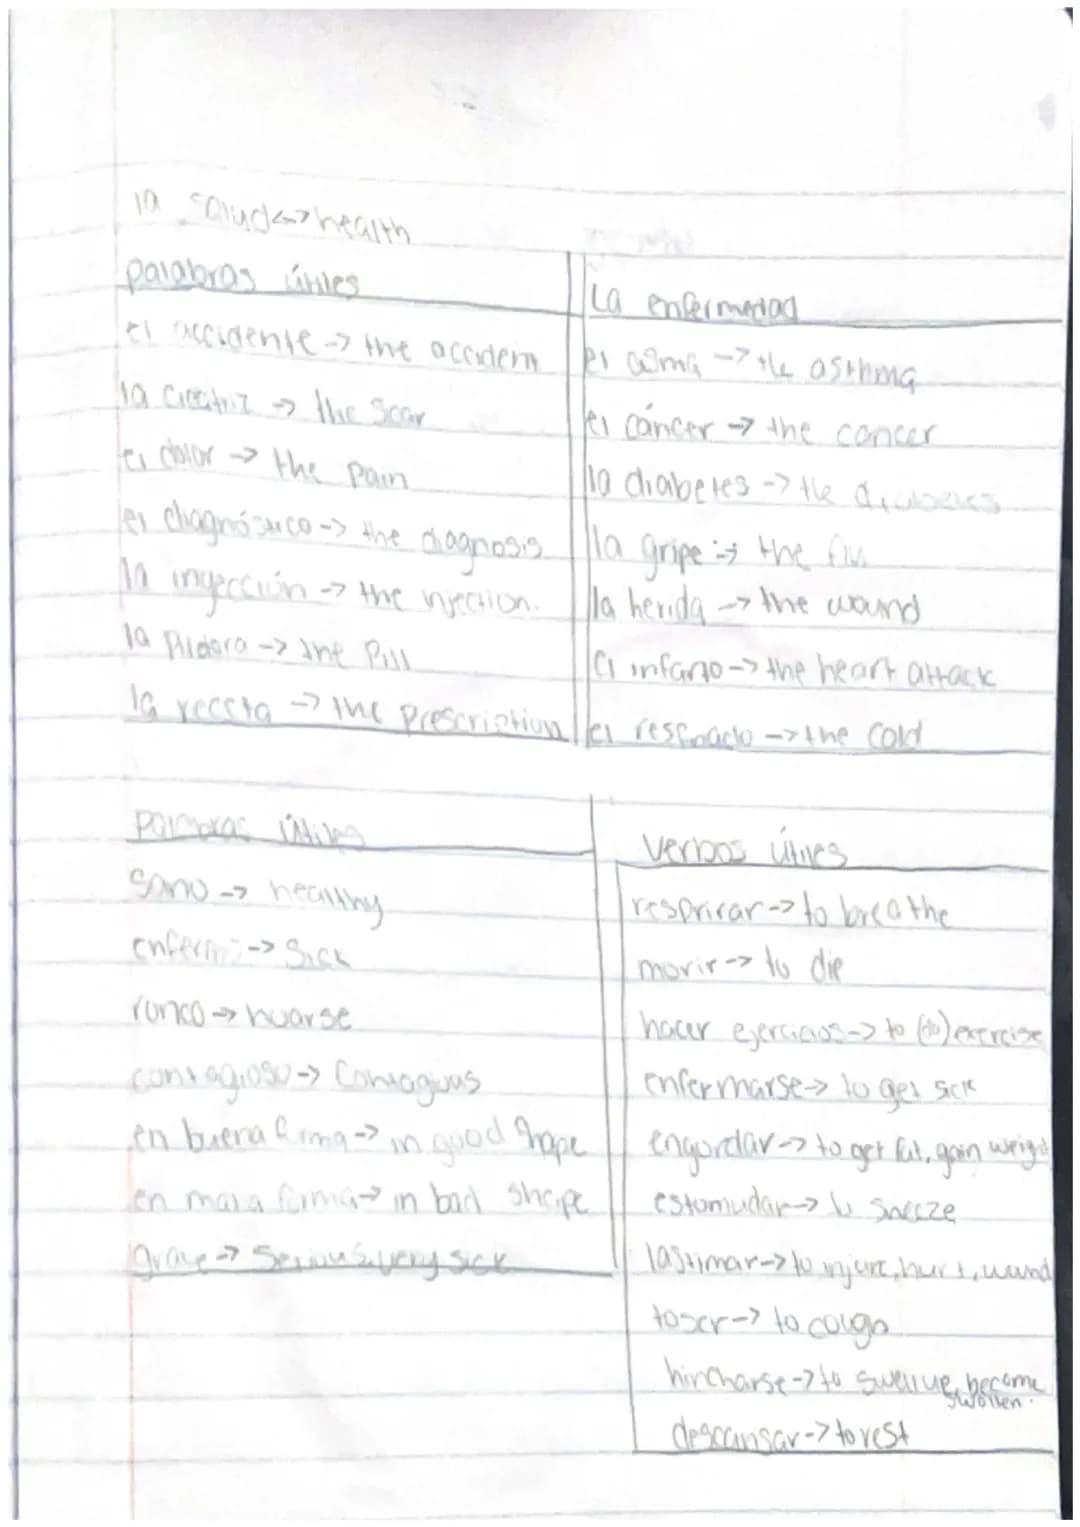 la salud <-> health
palabras útiles
el accidente -> the accident
la cicatriz -> the scar
el dolor -> the pain
el diagnóstico -> the diagnosis
la inyección -> the injection.
la píldora -> the Pill
la receta -> the prescription
La enfermedad
el asma -> the asthma
el cáncer -> the cancer
la diabetes -> the diabetes
la gripe -> the flu
la herida -> the wound
el infarto -> the heart attack
el resfriado -> the cold
palabras útiles
sano -> healthy
enfermo -> Sick
ronco -> hoarse
contagioso -> Contagious
en buena forma -> in good shape
en mala forma -> in bad shape
grave -> Serious, very sick
verbos útiles
resprirar -> to breathe
morir -> to die
hacer ejercicios -> to (do) exercise
enfermarse -> to get sick
engordar -> to get fat, gain weigt
estornudar -> to sneeze
lastimar -> to injure, hurt, wound
toser -> to cough
hincharse -> to swell up, become
swollen.
descansar -> to rest